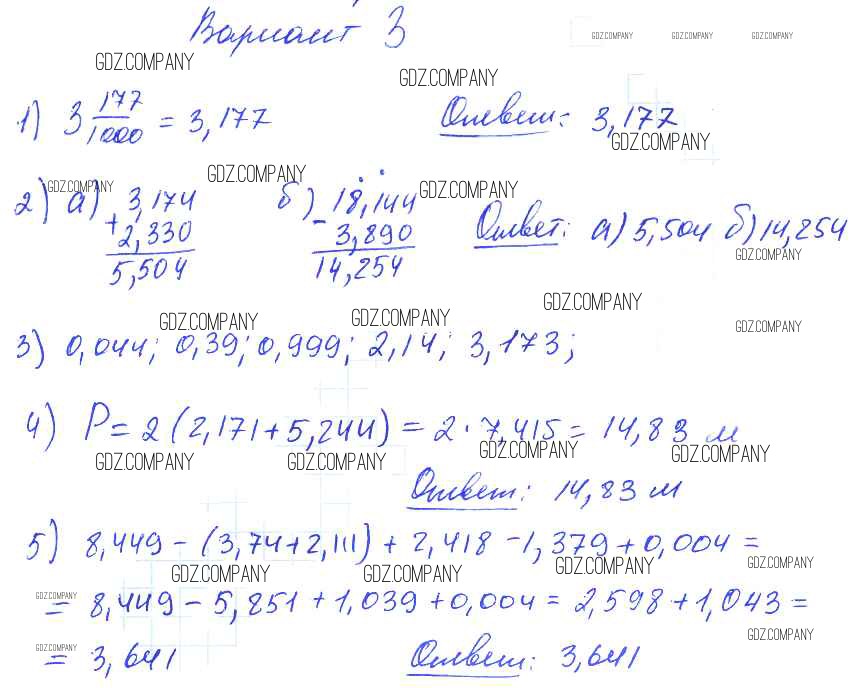 Вариант 3
GDZ.COMPANY GDZ.COMPANY GDZ.COMPANY
GDZ.COMPANY GDZ.COMPANY
1) 3 177/1000 = 3,177 Ответ: 3,177
GDZ.COMPANY
GDZ.COMPANY GDZ.COMPANY GDZ.COMPANY
2) а) 3,174 б) 18,144
+ 2,330 - 3,890 Ответ: а) 5,504 б) 14,254
5,504 14,254
GDZ.COMPANY
GDZ.COMPANY GDZ.COMPANY GDZ.COMPANY GDZ.COMPANY
3) 0,044; 0,39; 0,999; 2,14; 3,173;
4) P = 2 (2,171 + 5,244) = 2 · 7,415 = 14,83 м
GDZ.COMPANY GDZ.COMPANY GDZ.COMPANY GDZ.COMPANY
Ответ: 14,83 м
5) 8,449 - (3,74 + 2,111) + 2,418 - 1,379 + 0,004 =
GDZ.COMPANY GDZ.COMPANY GDZ.COMPANY GDZ.COMPANY
GDZ.COMPANY
= 8,449 - 5,851 + 1,039 + 0,004 = 2,598 + 1,043 =
GDZ.COMPANY GDZ.COMPANY
= 3,641 Ответ: 3,641